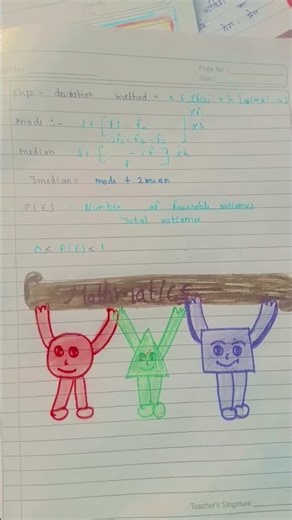 Page No.
Date
Step - deviation method = a + Σfiui x h [ui = xi - a
Σfi
mode :- l + [ f1 - f0
2f1 - f0 - f2 ] xh
median l + [ - cf
f ] xh
3 median = mode + 2 mean
P(E) - Number of favourable outcomes
Total outcomes
0 < P(E) < 1
Mathmatics
Teacher's Singature